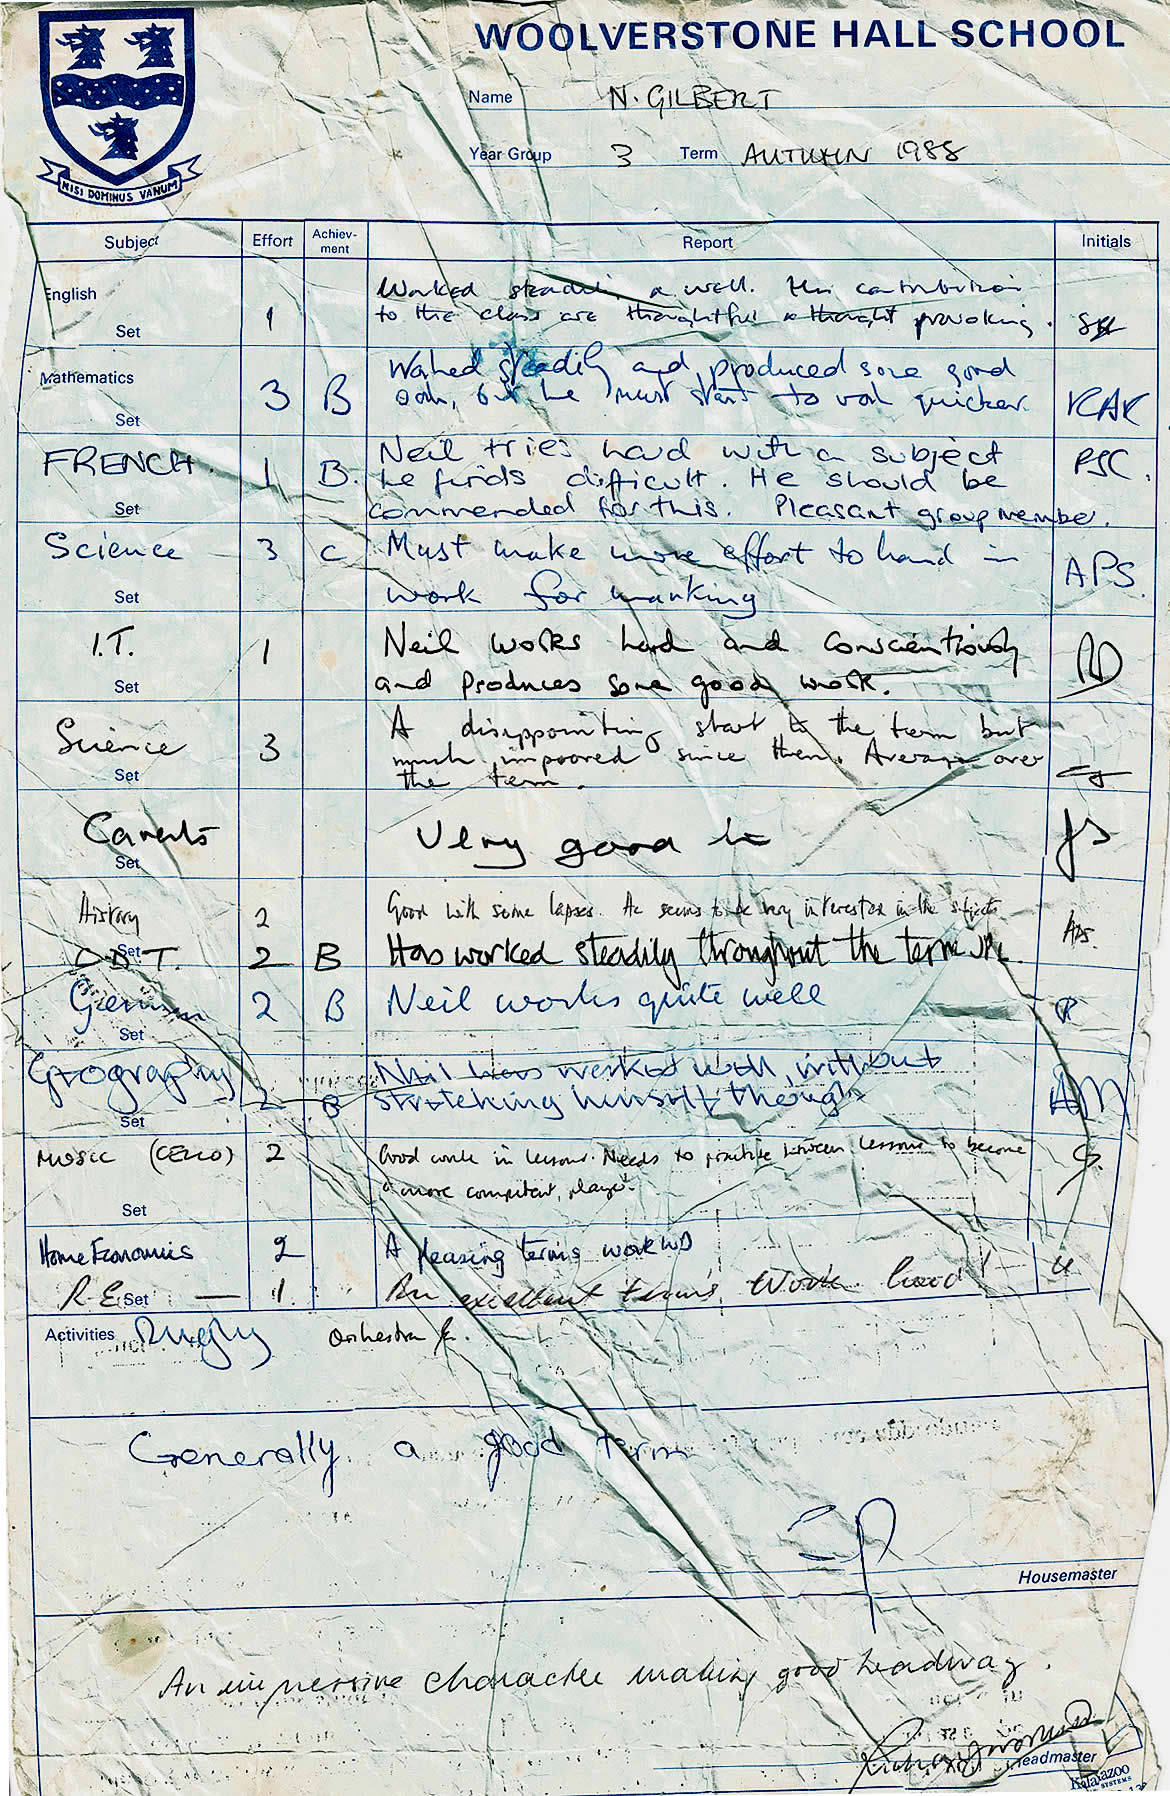 WOOLVERSTONE HALL SCHOOL
NISI DOMINUS VANUM
Name N. GILBERT
Year Group 3 Term AUTUMN 1988
Subject Effort Achiev-ment Report Initials
English Set 1 Worked steadily & well. His contribution
to the class are thoughtful & thought provoking.
Mathematics Set 3 B Worked steadily and produced some good
work, but he must start to work quicker. KAK
FRENCH. Set 1 B. Neil tries hard with a subject PJC.
he finds difficult. He should be
commended for this. Pleasant group member.
Science Set 3 C Must make more effort to hand in APS.
work for marking
I.T. Set 1 Neil works hard and conscientiously
and produces some good work.
Science Set 3 A disappointing start to the term but
much improved since then. Average over
the term.
Set Very good JS
History Set 2 Good with some lapses. He seems to be very interested in the subject
C.D.T. 2 B Has worked steadily throughout the term
German Set 2 B Neil works quite well
Geography Set 2 B Neil has worked well, without
stretching himself though AM
MUSIC (CELLO) Set 2 Good work in lessons. Needs to practise between lessons to become
a more competent player.
Home Economics 2 A pleasing terms work
R.E Set — 1. An excellent term's work. Good!
Activities Rugby Orchestra
Generally a good term
Housemaster
An impressive character making good headway.
Headmaster
Kalamazoo
SYSTEMS